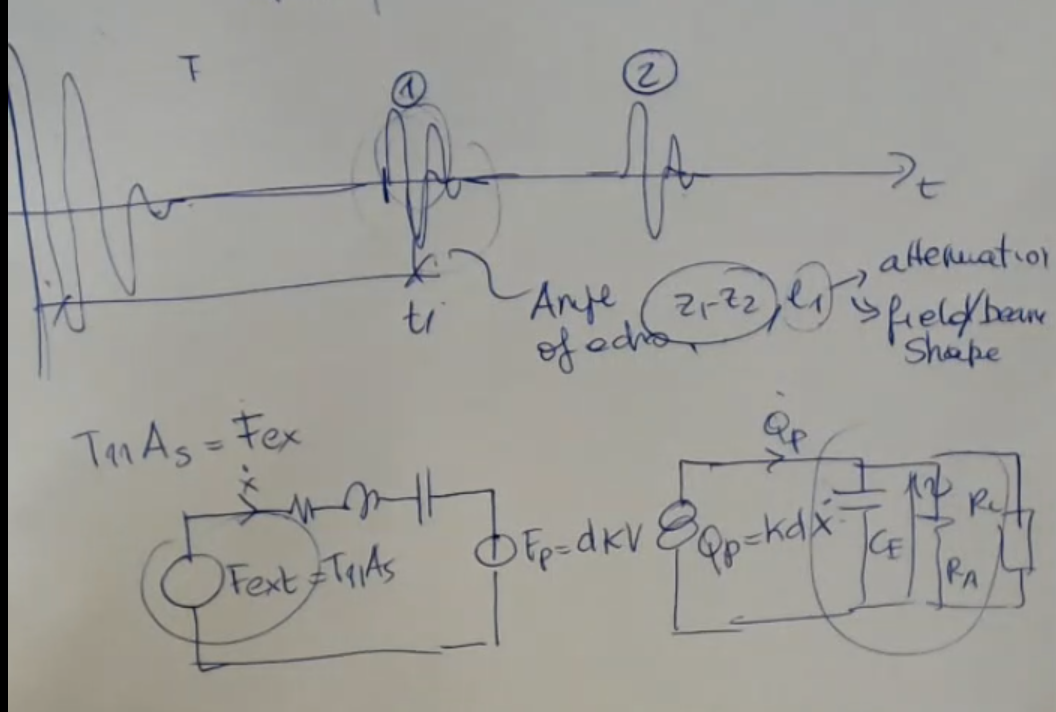 T
①
②
t
t1
Ampe
of echo
Z1-Z2, l1
attenuation
field/beam
Shape
T11 As = Fex
ẋ
Fext = T11As
Fp=dKV
Q̇p
Q̇p=Kdẋ
CE
RA